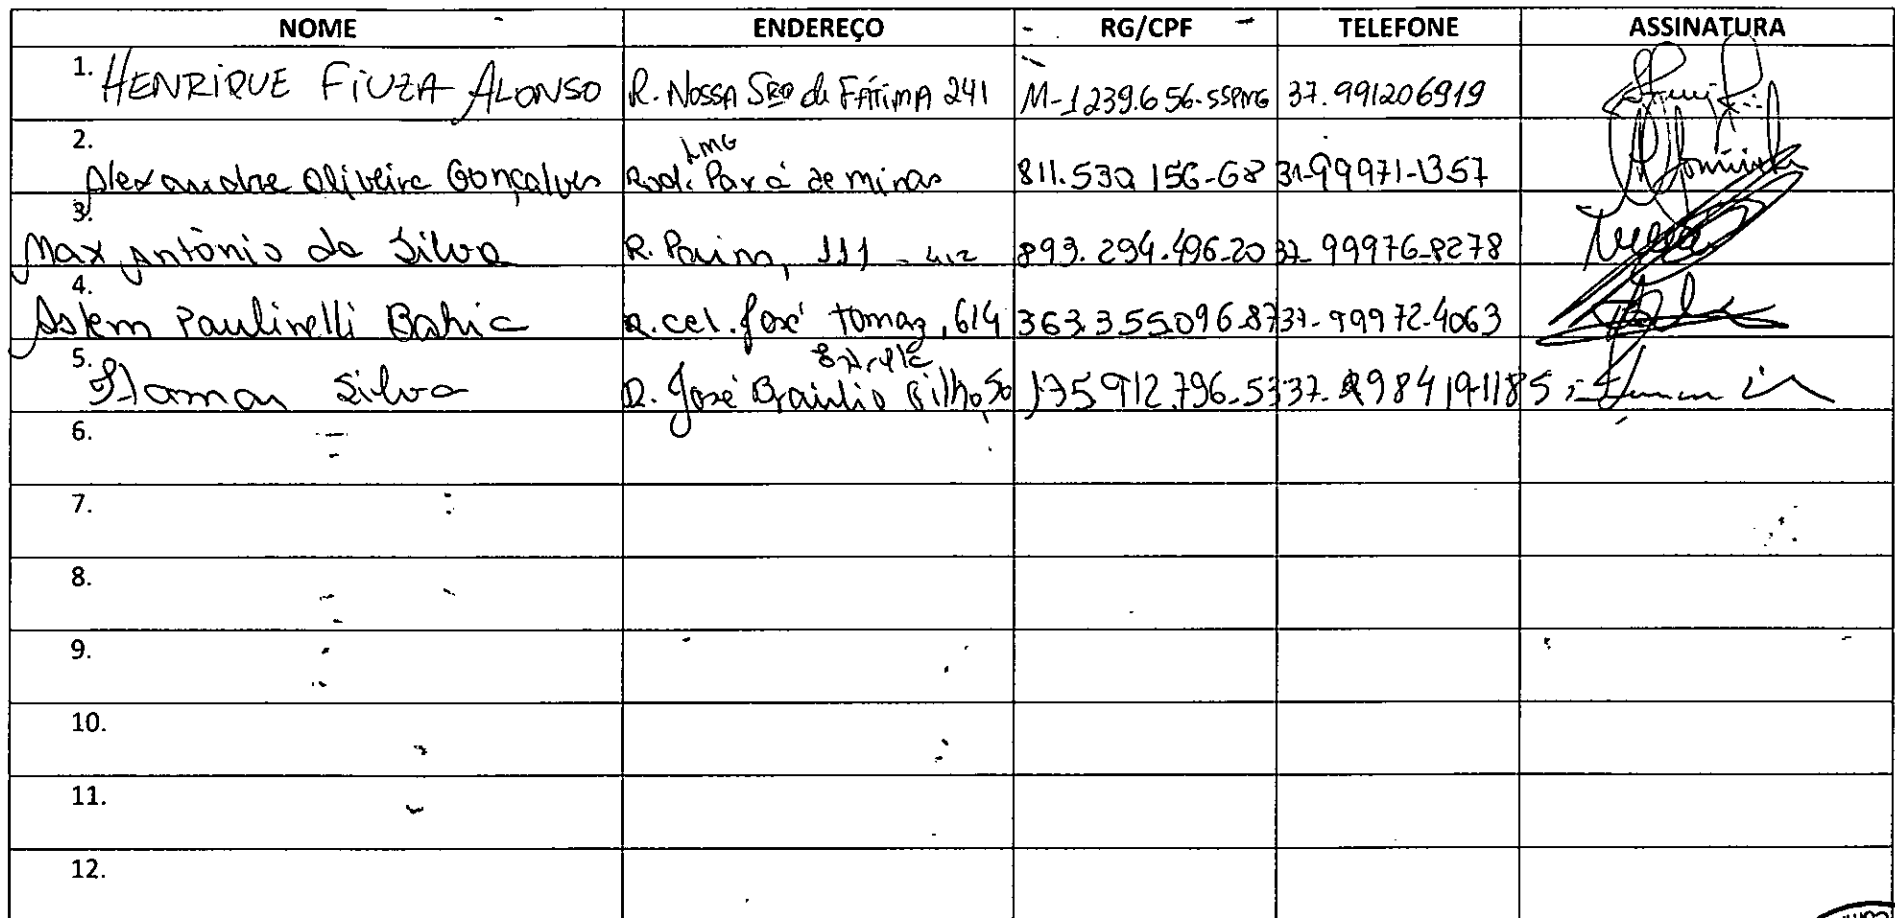 NOME ENDEREÇO RG/CPF TELEFONE ASSINATURA
1. HENRIQUE FIUZA ALONSO R. NOSSA SRA de FÁTIMA 241 M-1239.656-SSPMG 37.991206919
2. Alexandre Oliveira Gonçalves Rod. LMG Pará de minas 811.530 156-68 31-99971-1357
3. Max Antônio da Silva R. Pains, 111 893.294.496-20 37-99976-8278
4. Paulinelli Bahia R. cel. José tomaz, 614 363.355.096.87 37-99972-4063
5. Silva R. José Braulio Filho, 50 175 912.796-53 37-998419-1185
6.
7.
8.
9.
10.
11.
12.